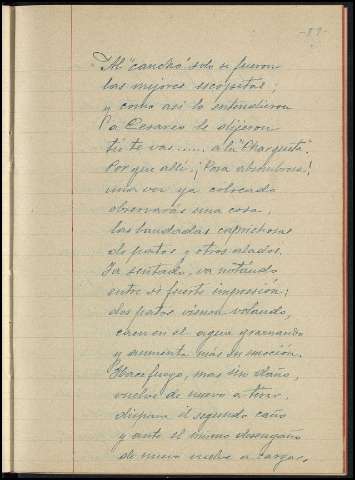 -37-
Al "cancho" solo se fueron
las mejores escopetas;
y como asi lo entendieron
a Cesareo le dijeron
tú te vas..... a la "Charquita"
Por que allí, ¡Para asombrarse!
una vez ya colocado
observarás una cosa,
las bandadas caprichosas
de patos y otros alados.
Ya sentado, va notando
entre si fuerte impresión;
dos patos vienen volando,
caen en el agua graznando
y aumenta más su emoción.
Hace fuego, mas sin daño,
vuelve de nuevo a tirar,
dispara el segundo caño
y ante el mismo desengaño
de nuevo vuelve a cargar.